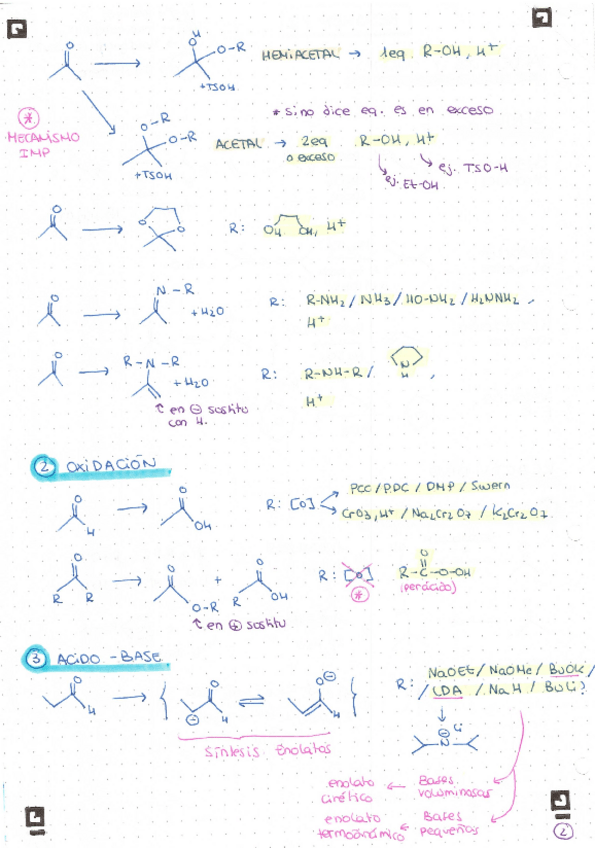 O
OH
O-R
HEMIACETAL → 1eq. R-OH, H⁺
+TSOH
* si no dice eq. es en exceso
* MECANISMO
IMP
O-R
O-R
ACETAL → 2eq R-OH, H⁺
o exceso
+TSOH
ej. Et-OH
ej. TSO-H
O
O O
R: OH OH, H⁺
O
N-R
+ H₂O
R: R-NH₂ / NH₃ / HO-NH₂ / H₂NNH₂,
H⁺
O
R-N-R
+ H₂O
R: R-NH-R / N H,
H⁺
↑ en ⊖ sustitu
con H.
2 OXIDACIÓN
O
H
O
OH
R: [O]
PCC / PDC / DMP / Swern
CrO3, H⁺ / Na₂Cr₂O7 / K₂Cr₂O7
O
R R
O
O-R
+
O
R OH
R: [O] R-C-O-OH
O
*
(perácido)
↑ en ⊕ sustitu
3 ACIDO-BASE
O
H
O
H
⊖
⇌
O⊖
H
R: NaOEt / NaOMe / BuOK /
/ LDA / NaH / BuLi?
⊖ Li
N
Síntesis Enolatos
enolato ← Bases
cinético voluminosas
enolato ← Bases
termodinámico pequeñas
2